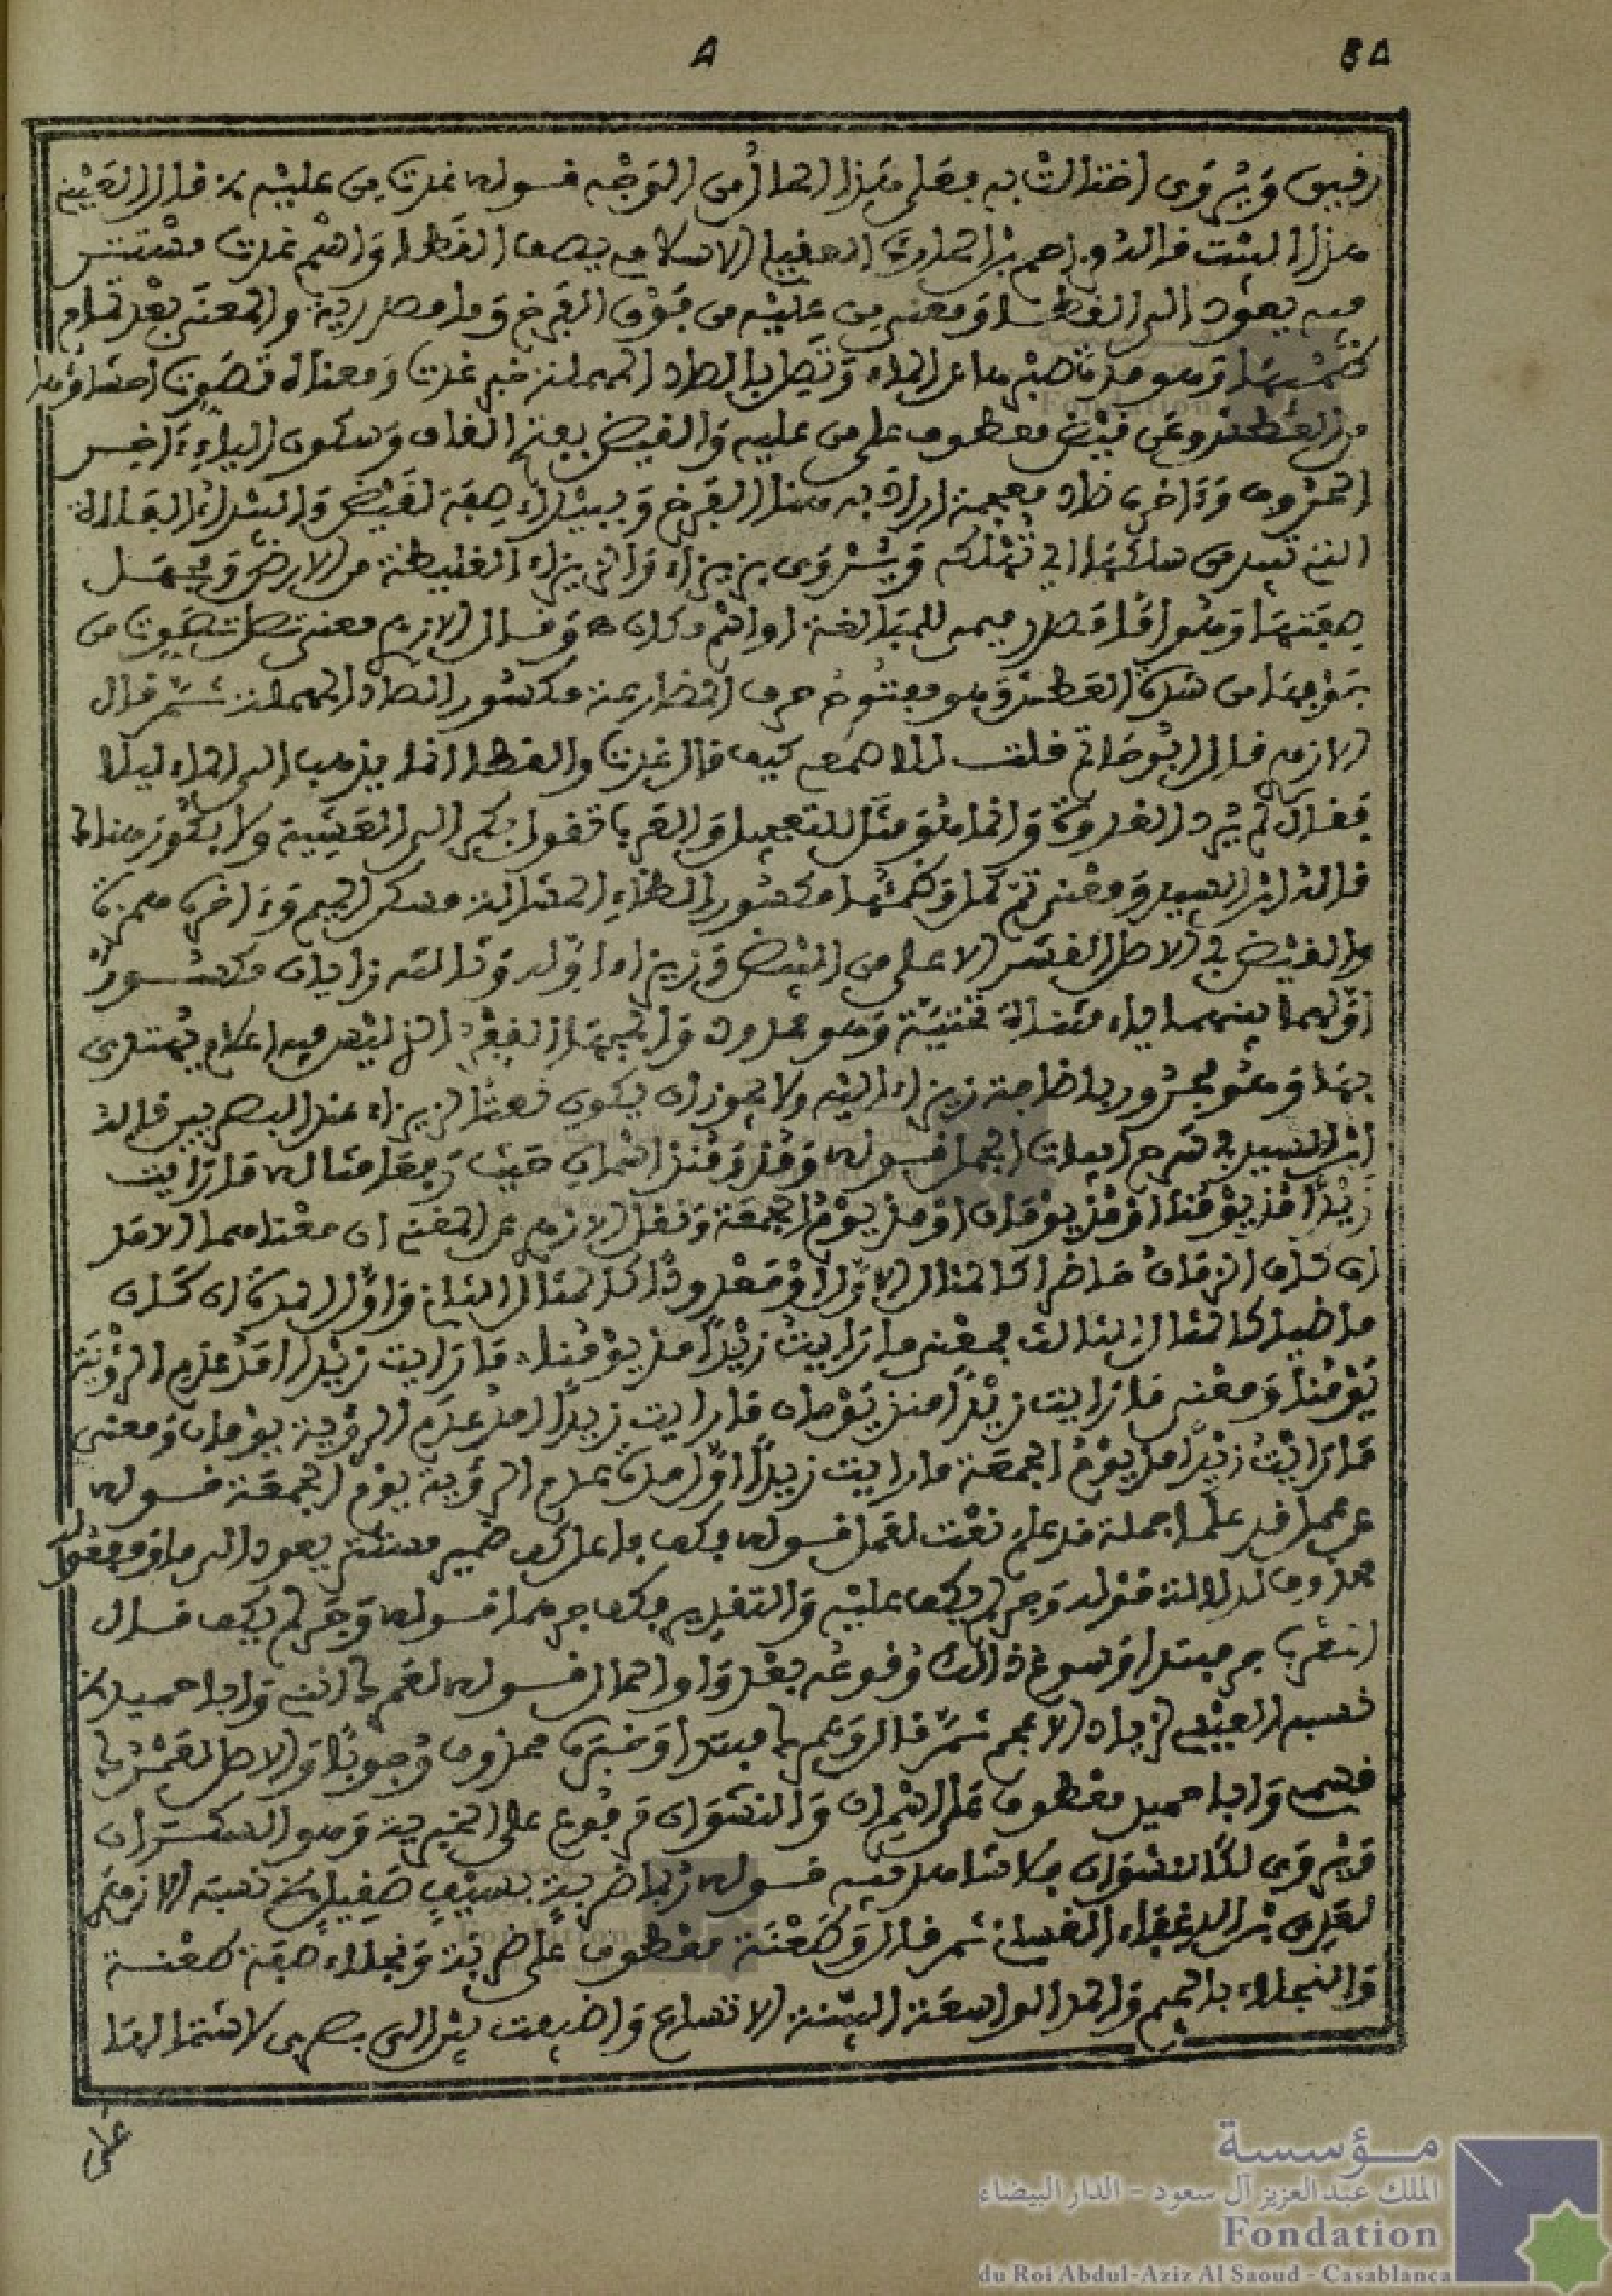 A
رفيق ويروى اختالت به فعلى هذا الحال من الوجه قوله غدت من عليه قال العيني
هذا البيت قاله مزاحم بن الحارث العقيلي الاسلامي يصف القطا واسم غدت مستتر
فيه يعود الى القطا ومعنى من عليه من فوق الفرخ وما مصدرية والمعنى بعد تمام
ظمئها وهو مدة صبرها عن الماء وتصل بالصاد المهملة خبر غدت ومعناه تصوت احشاؤها
من العطش وعن قيض معطوف على من عليه والقيض بفتح القاف وسكون الياء اخر
الحروف وءاخره ضاد معجمة اراد به هنا الفرخ وببيداء صفة لقيض والبيداء الفلاة
التي تبيد من سلكها اي تهلكه ويروى بزيزاء والزيزاء الغليظة من الارض ومجهل
صفتها وهو اما مصدر ميمي للمبالغة او اسم مكان وقال الازهري معنى تصل تصوت من
جوفها من شدة العطش وهو مفتوح حرف المضارعة مكسور الصاد المهملة ثم قال
الازهري قال ابو حاتم قلت للاصمعي كيف قال غدت والقطا انما يذهب الى الماء ليلا
فقال لم يرد الغدوة وانما هو مثل للتعجيل والعرب تقول بكر الى العشية ولا بكور هناك
قاله ابن السيد ومعنى تم كمل وظمئها مكسور الظاء المشالة مسكن الميم وءاخره همزة
والقيض في الاصل القشر الاعلى من البيض وزيزاء اوله وثالثه زايان مكسور
اولهما بينهما ياء مثناة تحتية وهو ممدود والمجهل القفر الذي ليس فيه اعلام يهتدى
بها وهو مجرور باضافة زيزاء اليه ولا يجوز ان يكون نعتا لزيزاء عند البصريين قاله
ابن السيد في شرح ابيات الجمل قوله ومذ ومنذ اسمان حيث رفعا مثاله ما رايت
زيدا مذ يومنا او مذ يومان او مذ يوم الجمعة ونقل الازهري عن المغني ان معناهما الامد
ان كان الزمان حاضرا كالمثال الاول او معدودا كالمثال الثاني واول المدة ان كان
ماضيا كالمثال الثالث فمعنى ما رايت زيدا مذ يومنا ما رايت زيدا امد عدم الرؤية
يومنا ومعنى ما رايت زيدا منذ يومان ما رايت زيدا امد عدم الرؤية يومان ومعنى
ما رايت زيدا مذ يوم الجمعة ما رايت زيدا اول مدة عدم الرؤية يوم الجمعة قوله
عن عمل قد علما جملة قد علم نعت لعمل قوله يكف فاعل يكف ضمير مستتر يعود الى ما ومفعوله
محذوف لدلالة قوله وجر لم يكف عليه والتقدير يكف جرهما قوله وجر لم يكف قال
المعرب جر مبتدا وسوغ ذلك وقوعه بعد واو الحال قوله لعمرك انني وابا حميد
نسبه العيني لزياد الاعجم ثم قال وعمرك مبتدا وخبره محذوف وجوبا والاصل لعمرك
قسمي وابا حميد معطوف على اسم ان والنشوان مرفوع على الخبرية وهو السكران
ويروى لكالنشوان فلا شاهد فيه قوله ربما ضربة بسيف صقيل نسبه الازهري
لعدي بن الرعلاء الغساني ثم قال وطعنة معطوف على ضربة ونجلاء صفة طعنة
والنجلاء بالجيم والمد الواسعة البينة الاتساع واضيفت بين الى بصرى لاشتمالها
على
مؤسسة
الملك عبد العزيز آل سعود - الدار البيضاء
Fondation
du Roi Abdul-Aziz Al Saoud - Casablanca